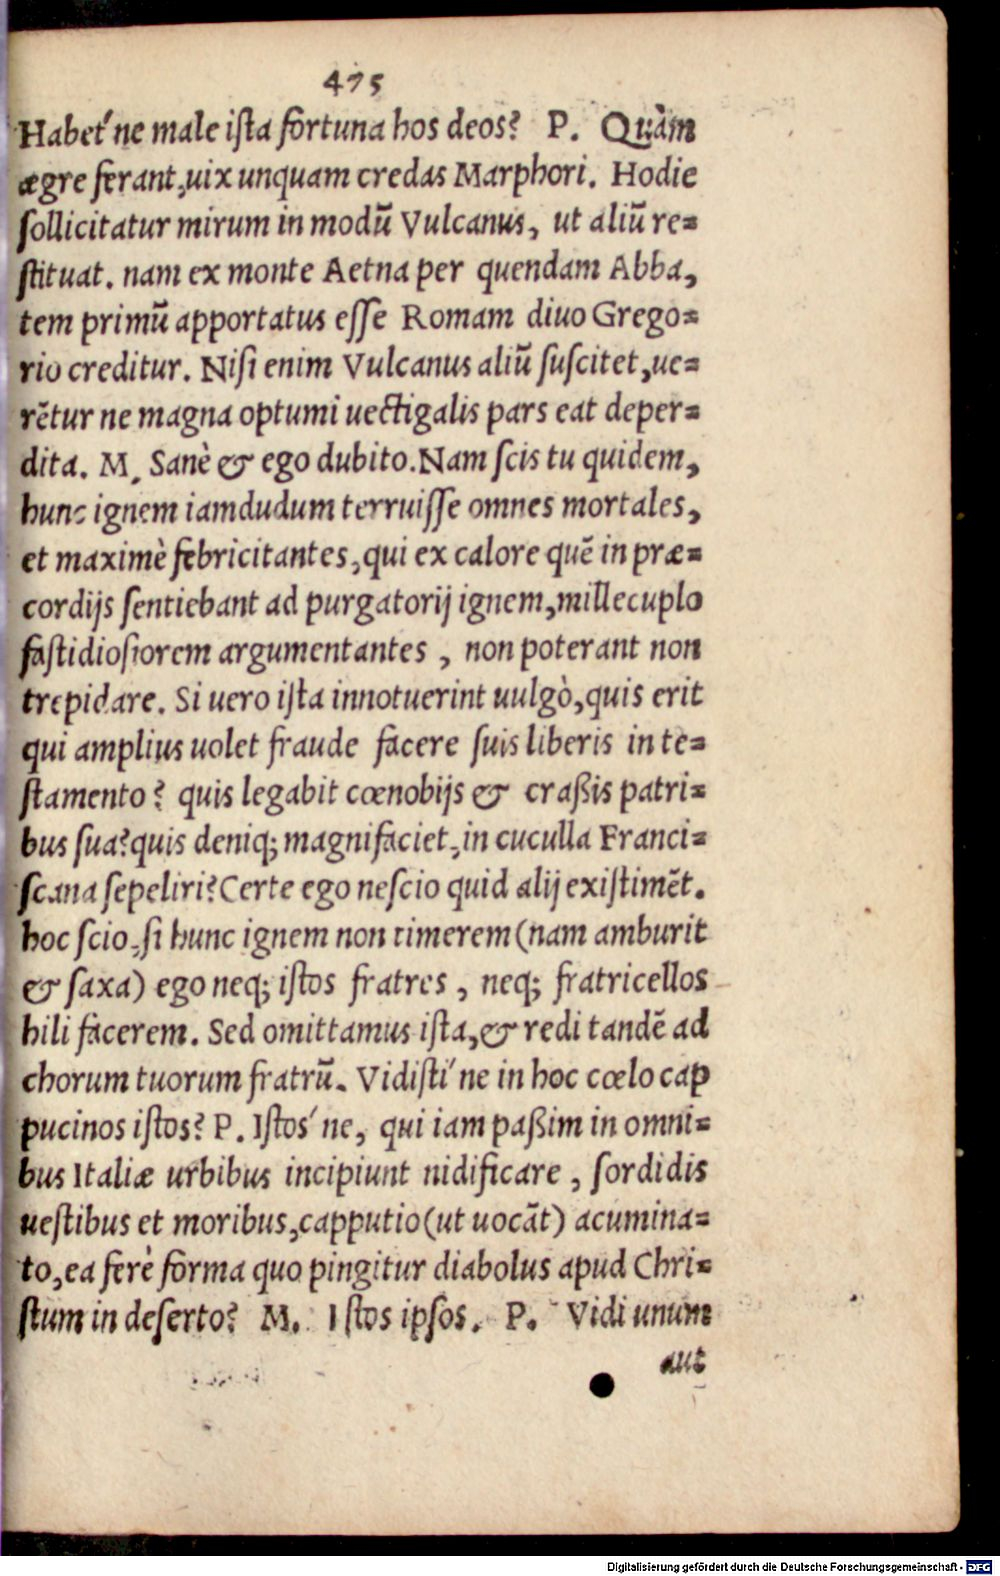 475
Habet' ne male iſta fortuna hos deos? P. Quàm
ægre ferant, uix unquam credas Marphori. Hodie
ſollicitatur mirum in modũ Vulcanus, ut aliũ re=
ſtituat. nam ex monte Aetna per quendam Abba,
tem primũ apportatus eſſe Romam diuo Grego=
rio creditur. Niſi enim Vulcanus aliũ ſuſcitet, ue=
rẽtur ne magna optumi uectigalis pars eat deper=
dita. M. Sanè & ego dubito. Nam ſcis tu quidem,
hunc ignem iamdudum terruiſſe omnes mortales,
et maximè febricitantes, qui ex calore quẽ in præ=
cordijs ſentiebant ad purgatorij ignem, millecuplo
faſtidioſiorem argumentantes, non poterant non
trepidare. Si uero iſta innotuerint uulgò, quis erit
qui amplius uolet fraude facere ſuis liberis in te=
ſtamento? quis legabit cœnobijs & craßis patri=
bus ſua? quis deniq; magnifaciet, in cuculla Franci=
ſcana ſepeliri? Certe ego neſcio quid alij exiſtimẽt.
hoc ſcio, ſi hunc ignem non timerem (nam amburit
& ſaxa) ego neq; iſtos fratres, neq; fratricellos
hili facerem. Sed omittamus iſta, & redi tandẽ ad
chorum tuorum fratrũ. Vidiſti' ne in hoc cœlo cap
pucinos iſtos? P. Iſtos' ne, qui iam paßim in omni=
bus Italiæ urbibus incipiunt nidificare, ſordidis
ueſtibus et moribus, capputio (ut uocãt) acumina=
to, ea ferè forma quo pingitur diabolus apud Chri=
ſtum in deſerto? M. Iſtos ipſos. P. Vidi unum
aut
Digitalisierung gefördert durch die Deutsche Forschungsgemeinschaft - DFG